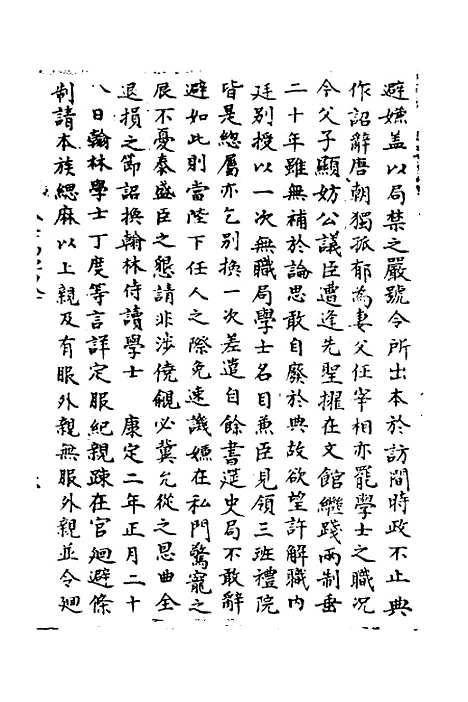 避嫌盖以局禁之嚴號令所出本於訪問時政不止典
作詔辭唐朝獨孤郁為妻父任宰相亦罷學士之職况
令父子顯妨公議臣遭逢先聖擢在文館繼踐兩制垂
二十年雖無補於論思敢自廢於典故欲望許解職内
廷别授以一次無職局學士名目兼臣見領三班禮院
皆是緫屬亦乞别換一次差遣自餘書筵史局不敢辭
避如此則當陛下任人之際免速譏嫌在私門驚寵之
辰不憂泰盛臣之懇請非涉僥覦必冀允從之恩曲全
退損之節詔換翰林侍讀學士　康定二年正月二十
八日翰林學士丁度等言詳定服紀親疎在官廻避條
制請本族緦麻以上親及有服外親無服外親並令廻